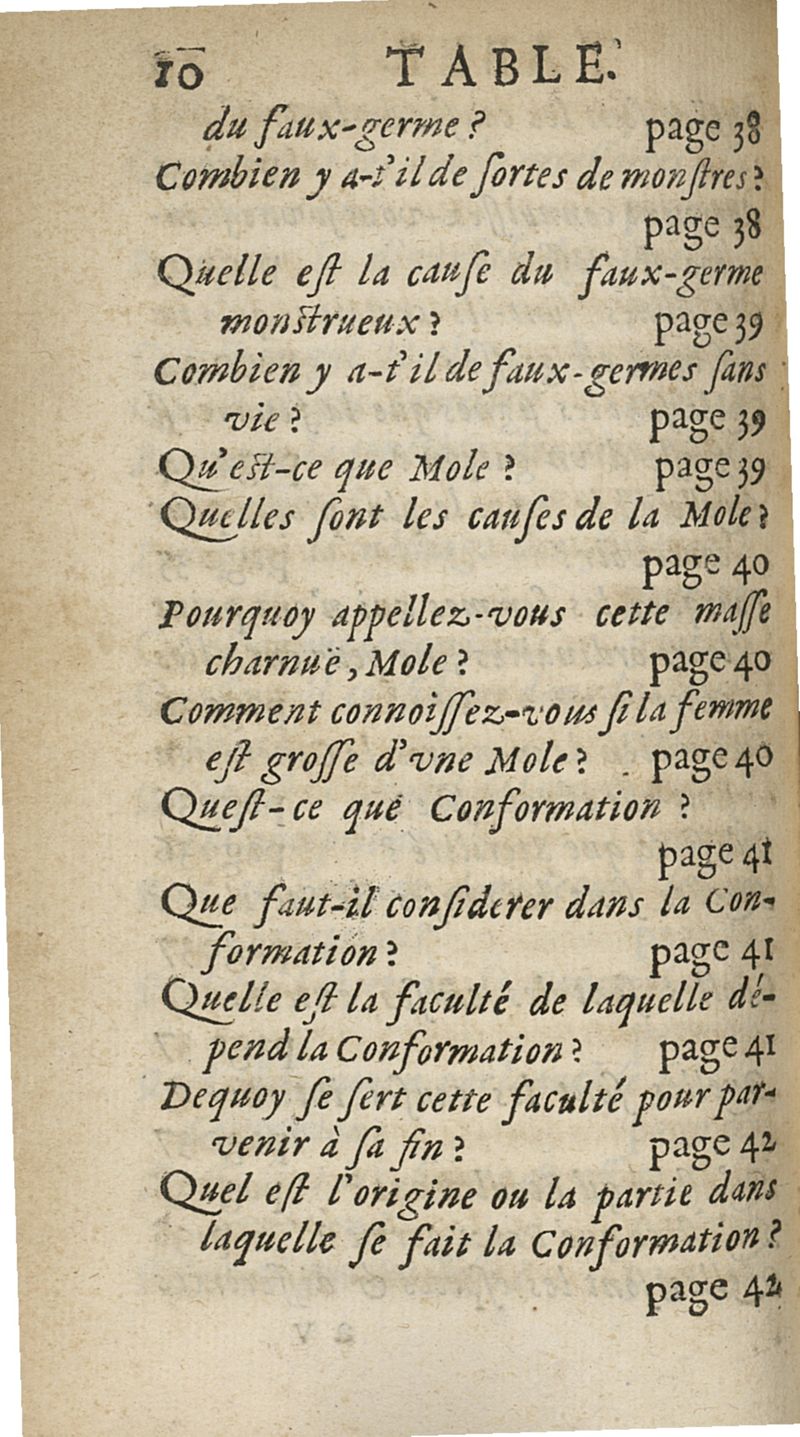 10 TABLE.
du faux-germe ? page 38
Combien y a-t'il de ſortes de monſtres ?
page 38
Quelle eſt la cauſe du faux-germe
monſtrueux ? page 39
Combien y a-t'il de faux-germes ſans
vie ? page 39
Qu'eſt-ce que Mole ? page 39
Quelles ſont les cauſes de la Mole ?
page 40
Pourquoy appellez-vous cette maſſe
charnuë, Mole ? page 40
Comment connoiſſez-vous ſi la femme
eſt groſſe d'vne Mole ? page 40
Queſt-ce que Conformation ?
page 41
Que faut-il conſiderer dans la Con-
formation ? page 41
Quelle eſt la faculté de laquelle dé-
pend la Conformation ? page 41
Dequoy ſe ſert cette faculté pour par-
venir à ſa fin ? page 42
Quel eſt l'origine ou la partie dans
laquelle ſe fait la Conformation ?
page 42